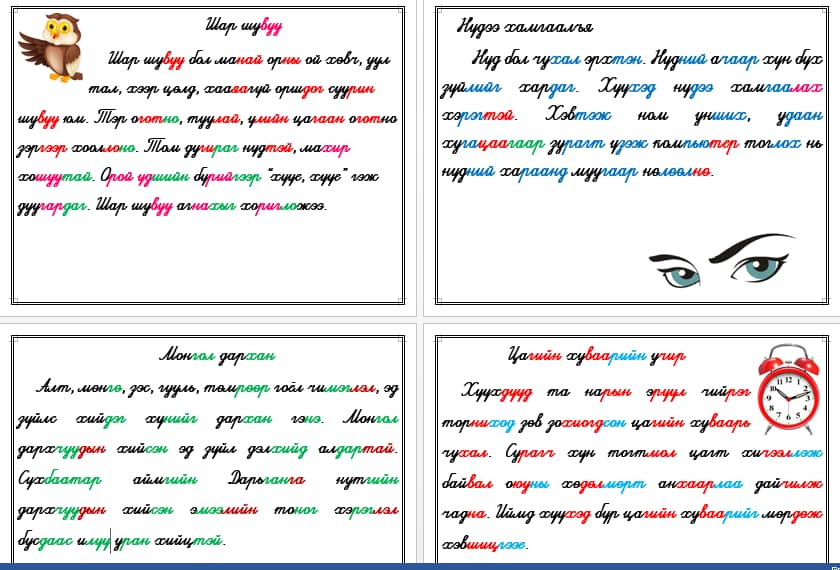 Шар шувуу
Шар шувуу бол манай орны ой хөвч, уул
тал, хээр цөлд, хаяагүй оршдог суурин
шувуу юм. Тэр оготно, туулай, үлийн цагаан оготно
зэргээр хооллоно. Том дугираг нүдтэй, махир
хошуутай. Орой үдшийн бүрийгээр “хүүе, хүүе” гэж
дуугардаг. Шар шувуу агнахыг хоригложээ.
Нүдээ хамгаалъя
Нүд бол чухал эрхтэн. Нүдний агаар хүн бүх
зүйлийг хардаг. Хүүхэд нүдээ хамгаалах
хэрэгтэй. Хэвтээж ном уншиx, удаан
хугацаагаар зурагт үзэж компьютер тоглох нь
нүдний хараанд муугаар нөлөөлнө.
Монгол дархан
Алт, мөнгө, зэс, гууль, төмрөөр гоёл чимэглэл, эд
зүйлс хийдэг хүнийг дархан гэнэ. Монгол
дархчуудын хийсэн эд зүйл дэлхийд алдартай.
Сүхбаатар аймгийн Дарьганга нутгийн
дархчуудын хийсэн эмээлийн тоног хэрэглэл
бусдаас илүү уран хийцтэй.
Цагийн хуваарийн учир
Хүүхдүүд та нарын эрүүл чийрэг
торниход зөв зохиогдсон цагийн хуваарь
чухал. Сурагч хүн тогтмол цагт хичээллэж
байвал оюуны хөдөлмөрт анхаарлаа дайчилж
чадна. Иймд хүүхэд бүр цагийн хуваарийг мөрдөж
хэвшицгээе.